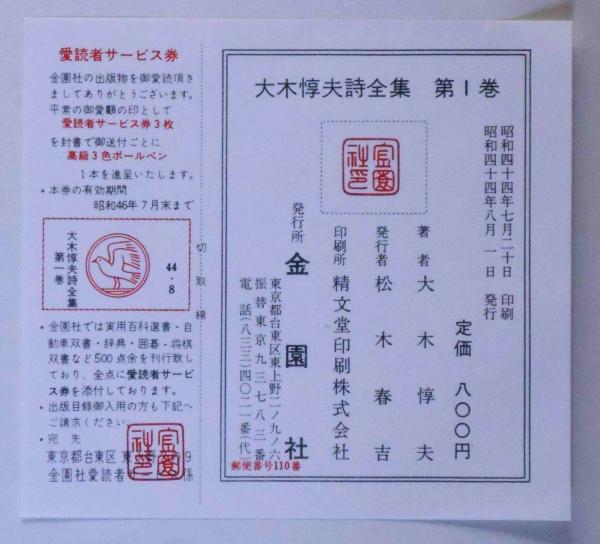 愛読者サービス券
金園社の出版物を御愛読頂き
ましてありがとうございます。
平素の御愛顧の印として
愛読者サービス券3枚
を封書で御送付ごとに
高級3色ボールペン
1本を進呈いたします。
・本券の有効期間
昭和46年7月末まで
大木惇夫詩全集
第一巻
44・8
・金園社では実用百科選書・自
動車双書・辞典・囲碁・将棋
双書など500点余を刊行致し
ており、全点に愛読者サービ
ス券を添付しております。
・出版目録御入用の方も下記へ
ご請求ください
・宛先
東京都台東区東
9
金園社愛読者
係
切取線
大木惇夫詩全集 第1巻
金園社印
昭和四十四年七月二十日 印刷
昭和四十四年八月一日 発行
定価 八〇〇円
著者 大木惇夫
発行者 松木春吉
印刷所 精文堂印刷株式会社
発行所 金園社
東京都台東区東上野二ノ九ノ六
振替東京九三七八三番
電話(八三三)四〇二一番(代)
郵便番号110番
金園社印